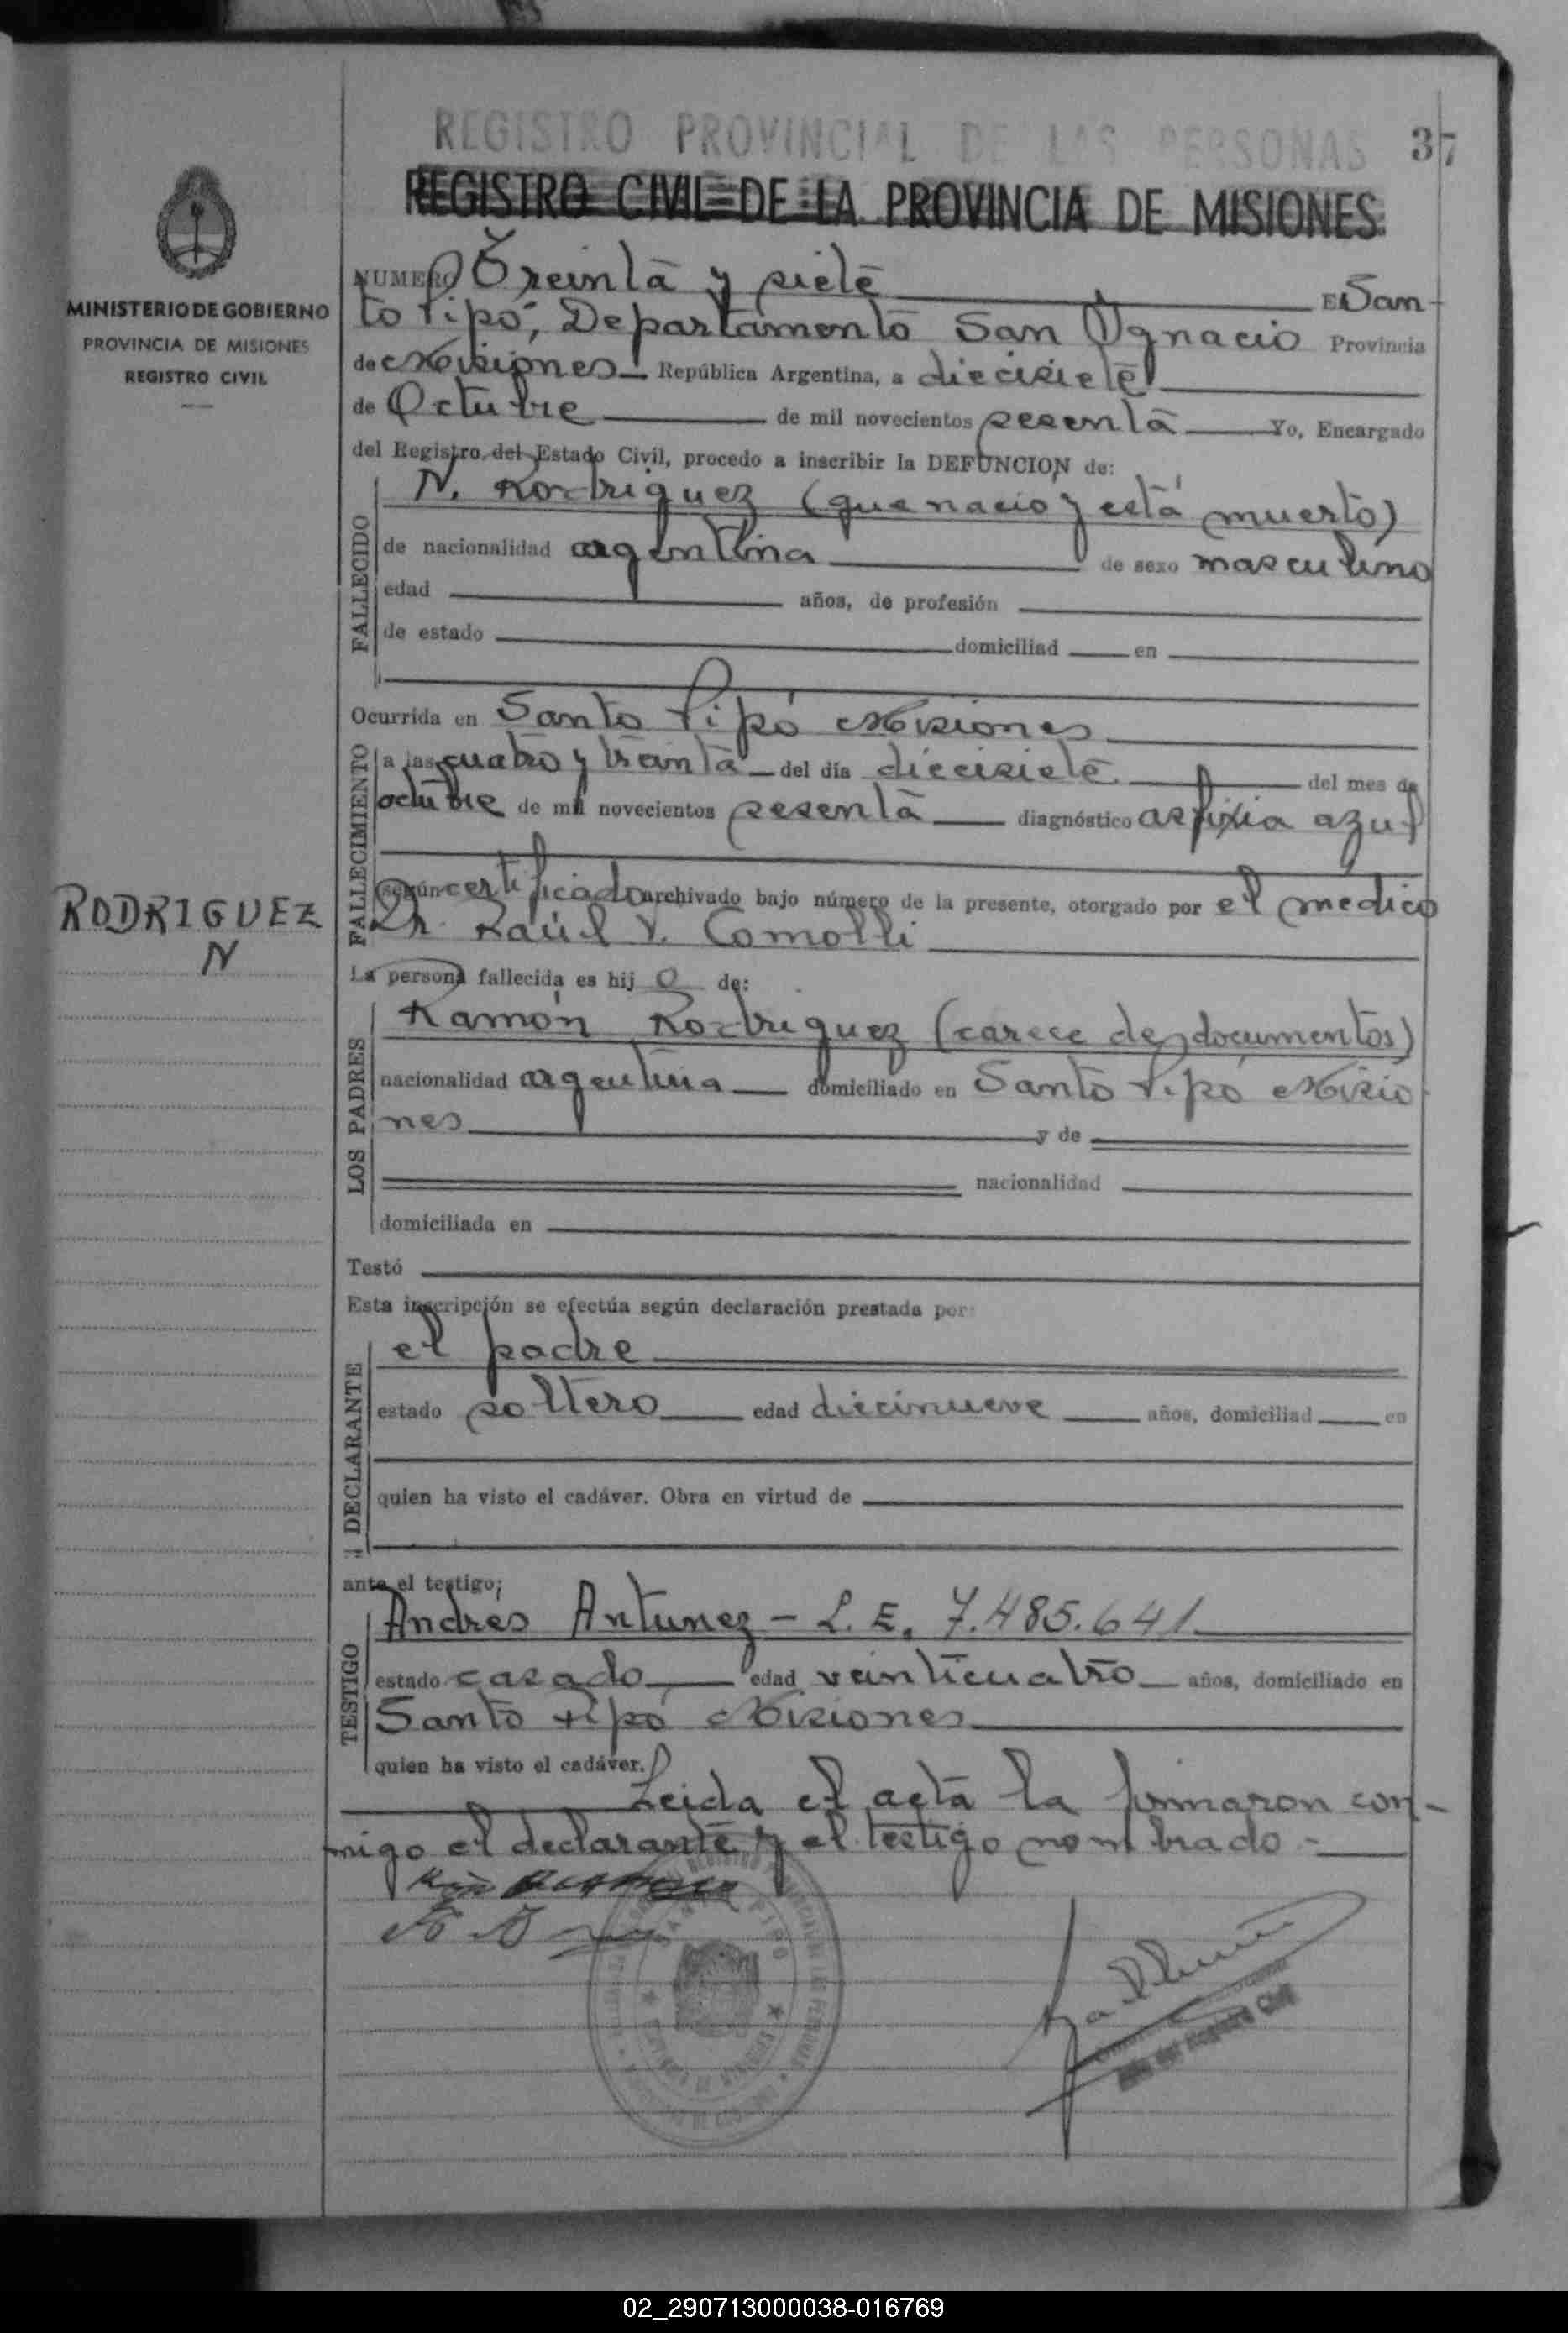 REGISTRO PROVINCIAL DE LAS PERSONAS 37
REGISTRO CIVIL DE LA PROVINCIA DE MISIONES
MINISTERIO DE GOBIERNO
PROVINCIA DE MISIONES
REGISTRO CIVIL
NUMERO Treinta y siete En San-
to Pipó, Departamento San Ygnacio Provincia
de Misiones República Argentina, a diecisiete
de Octubre de mil novecientos sesenta Yo, Encargado
del Registro del Estado Civil, procedo a inscribir la DEFUNCION de:
FALLECIDO
N. Rodriguez (que nacio y está muerto)
de nacionalidad argentina de sexo masculino
edad años, de profesión
de estado domiciliad en
Ocurrida en Santo Pipó Misiones
FALLECIMIENTO
a las cuatro y treinta del día diecisiete del mes de
octubre de mil novecientos sesenta diagnóstico asfixia azul
según certificado archivado bajo número de la presente, otorgado por el medico
Dr. Raúl V. Comolli
RODRIGUEZ
N
La persona fallecida es hij o de:
LOS PADRES
Ramón Rodriguez (carece de documentos)
nacionalidad argentina domiciliado en Santo Pipó Misio
nes y de
nacionalidad
domiciliada en
Testó
Esta inscripción se efectúa según declaración prestada por:
DECLARANTE
el padre
estado soltero edad diecinueve años, domiciliad en
quien ha visto el cadáver. Obra en virtud de
ante el testigo;
TESTIGO
Andrés Antunez - L. E. 7.485.641
estado casado edad veinticuatro años, domiciliado en
Santo Pipó Misiones
quien ha visto el cadáver.
Leida el acta la firmaron con-
migo el declarante y el testigo nombrado.-
SANTO PIPO
02_290713000038-016769